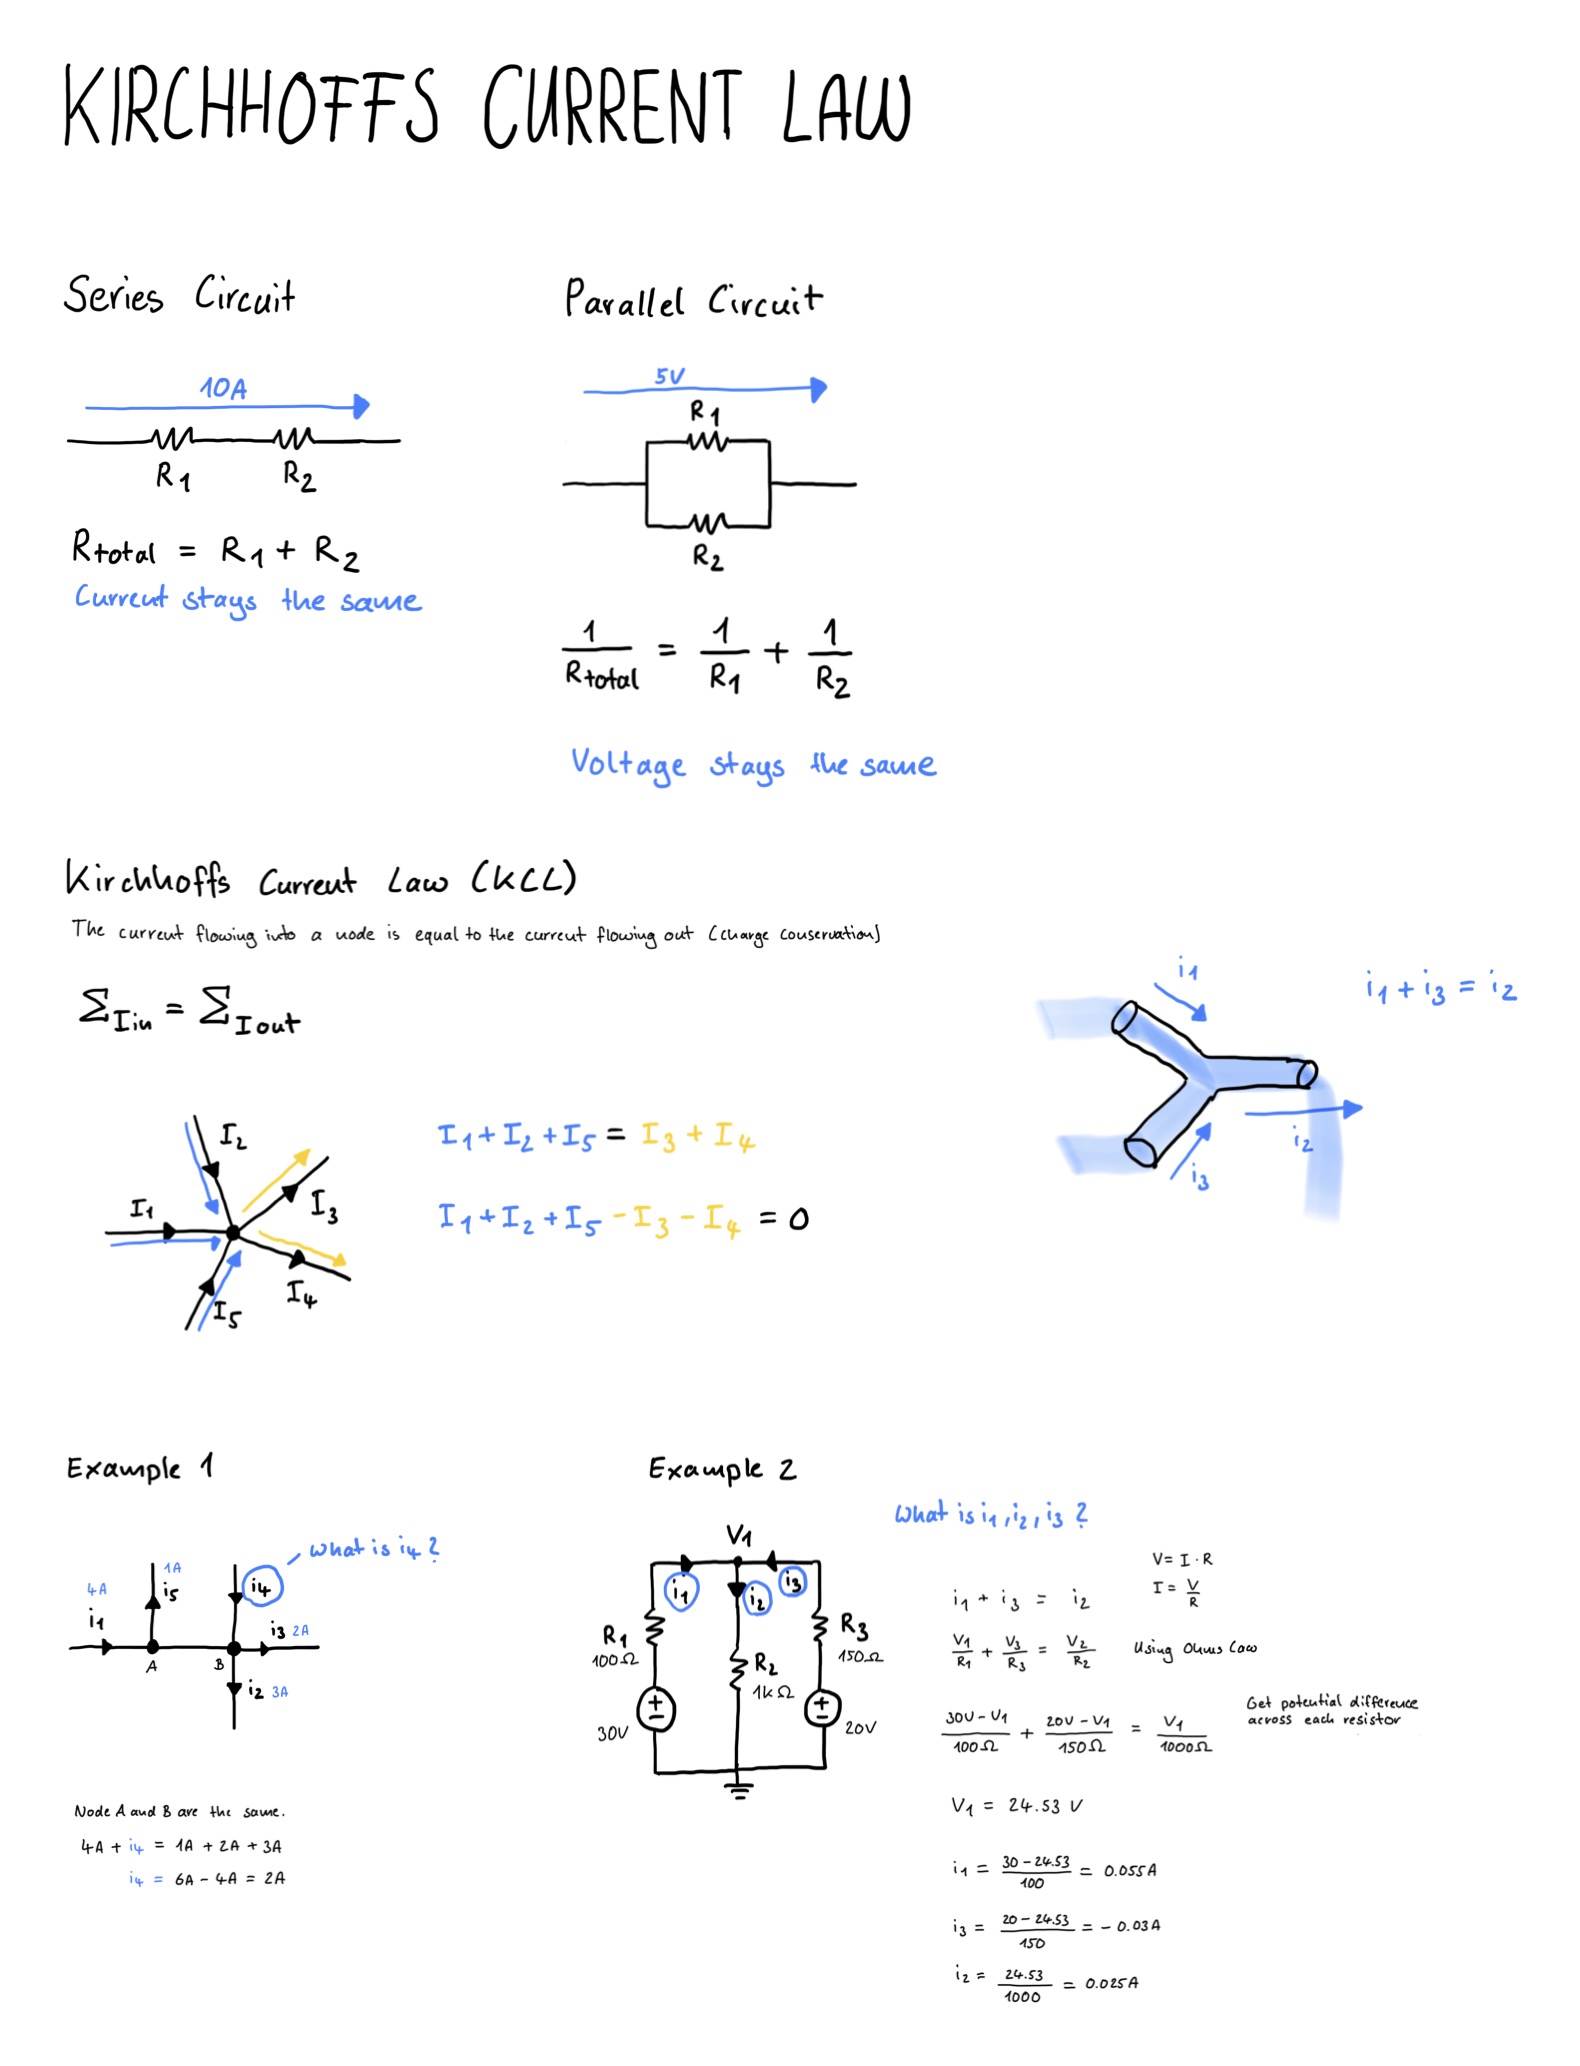 KIRCHHOFFS CURRENT LAW
Series Circuit
10A
R1 R2
Rtotal = R1 + R2
Current stays the same
Parallel Circuit
5V
R1
R2
1/Rtotal = 1/R1 + 1/R2
Voltage stays the same
Kirchhoffs Current Law (KCL)
The current flowing into a node is equal to the current flowing out (charge conservation)
ΣIin = ΣIout
I2
I1
I3
I4
I5
I1 + I2 + I5 = I3 + I4
I1 + I2 + I5 - I3 - I4 = 0
i1
i1 + i3 = i2
i2
i3
Example 1
What is i4?
1A
4A
i5
i4
i1
i3 2A
A
B
i2 3A
Node A and B are the same.
4A + i4 = 1A + 2A + 3A
i4 = 6A - 4A = 2A
Example 2
V1
i1
i2
i3
R1
100Ω
R2
1kΩ
R3
150Ω
30V
20V
What is i1, i2, i3?
V = I · R
I = V/R
i1 + i3 = i2
V1/R1 + V3/R3 = V2/R2 Using Ohms Law
Get potential difference
across each resistor
30V - V1/100Ω + 20V - V1/150Ω = V1/1000Ω
V1 = 24.53 V
i1 = 30 - 24.53/100 = 0.055A
i3 = 20 - 24.53/150 = - 0.03A
i2 = 24.53/1000 = 0.025A